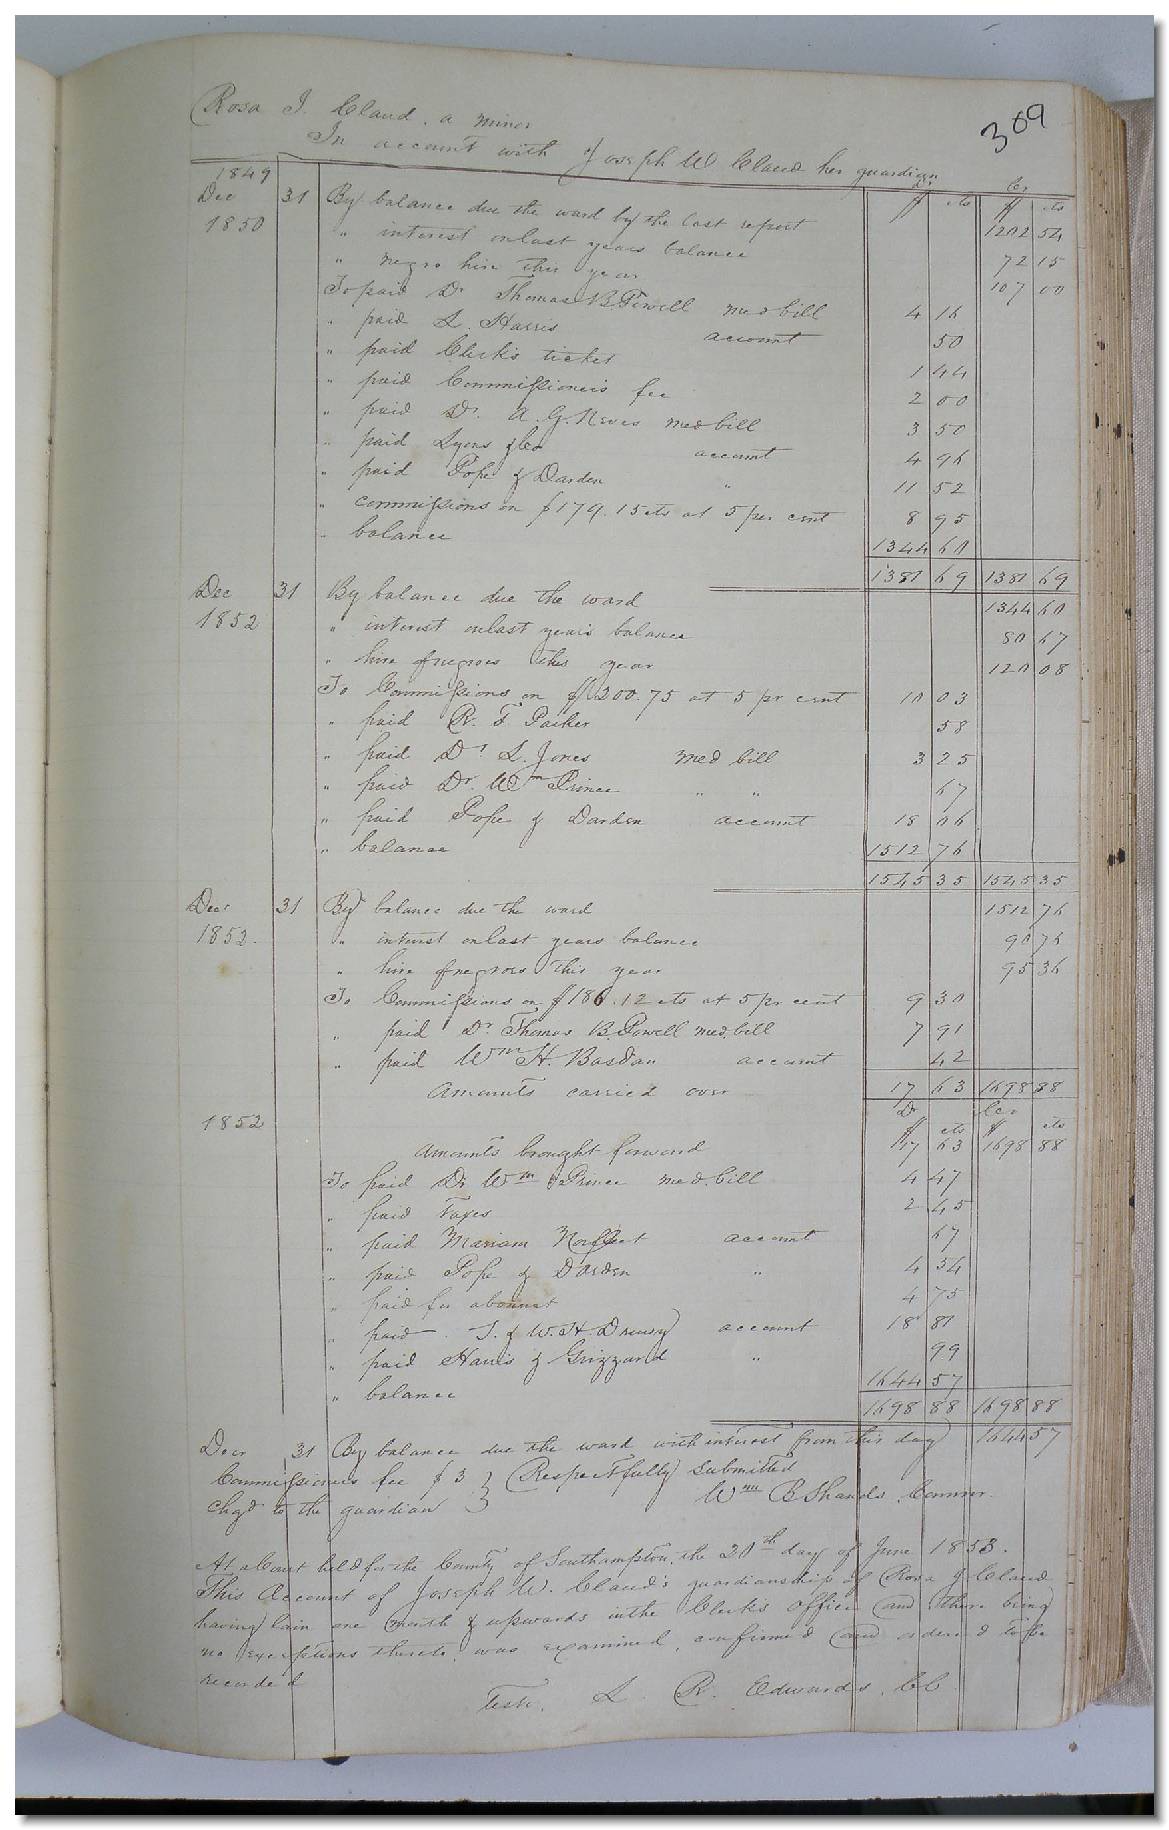 309
Rosa J. Claud, a minor
In account with Joseph W Claud her guardian
Dr Cr
1849 $ cts $ cts
Dec 31 By balance due the ward by the last report 1202 54
1850 " interest on last years balance 72 15
" negro hire this year 107 00
To paid Dr Thomas B. Powell med bill 4 16
" paid L. Harris account 50
" paid Clerks ticket 1 44
" paid Commissioners fee 2 00
" paid Dr. A. G. Neves med bill 3 50
" paid Lyons & Co account 4 96
" paid Pope & Darden " 11 52
" commissions on $179.15 cts at 5 per cent 8 95
" balance 1344 60
1381 69 1381 69
Dec 31 By balance due the ward 1344 60
1852 " interest on last years balance 80 67
" hire of negroes this year 120 08
To Commissions on $200.75 at 5 pr cent 10 03
" paid R. F Parker 58
" paid Dr L. Jones med bill 3 25
" paid Dr. Wm Prince " " 67
" paid Pope & Darden account 18 06
" balance 1512 76
1545 35 1545 35
Decr 31 By balance due the ward 1512 76
1852. " interest on last years balance 90 76
" hire of negroes this year 95 36
To Commissions on $186.12 cts at 5 pr cent 9 30
" paid Dr. Thomas B. Powell med. bill 7 91
" paid Wm H. Basdan account 42
Amounts carried over 17 63 1698 88
Dr Cr
1852 $ cts $ cts
Amounts brought forward 17 63 1698 88
To paid Dr Wm Prince med. bill 4 47
" paid Taxes 2 45
" paid Mariam Norfleet account 67
" paid Pope & Darden " 4 34
" paid for 4 75
" paid J. & W. H. Drewry account 18 81
" paid Harris & Grizzard " 99
" balance 1644 57
1698 88 1698 88
Decr 31 By balance due the ward with interest from this day 1644 57
Commissioners fee $3 } Respectfully submitted
chgd to the guardian } Wm B Shands Commr.
At a Court held for the County of Southampton, the 20th day of June 1853.
This Account of Joseph W. Claud's guardianship of Rosa J Claud
having lain one month & upwards in the Clerk's office and there being
no exceptions thereto, was examined, confirmed and ordered to be
recorded
Teste, L. R. Edwards, CC